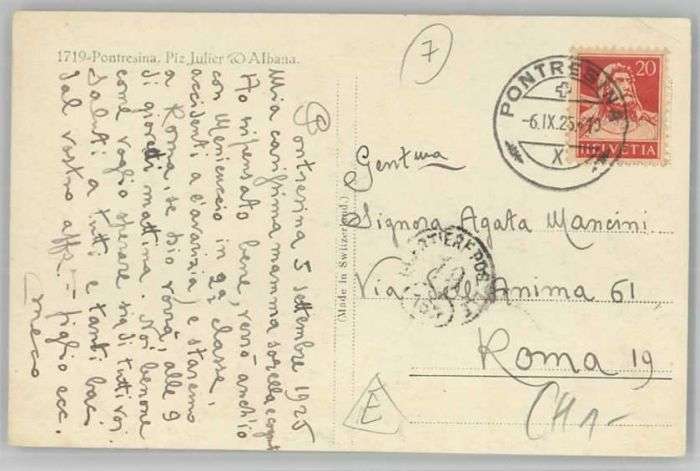 1719-Pontresina. Piz Julier & Albana.
Pontresina 5 settembre 1925
Mia carissima mamma sorella e cognato
Ho ripensato bene, verrò anch'io
con Menicuccio in 2a classe,
accidenti a l'avarizia) e staremo
a Roma, se Dio vorrà, alle 9
di giovedì mattina. Noi benone
come voglio sperare sia di tutti voi.
Saluti a tutti e tanti baci
dal vostro affo. figlio ecc.
Meco
(Made in Switzerland.)
7
PONTRESINA
-6.IX.25
X
20
HELVETIA
Gentma
Signora Agata Mancini
Via dell'Anima 61
Roma 19
E
CH 1-